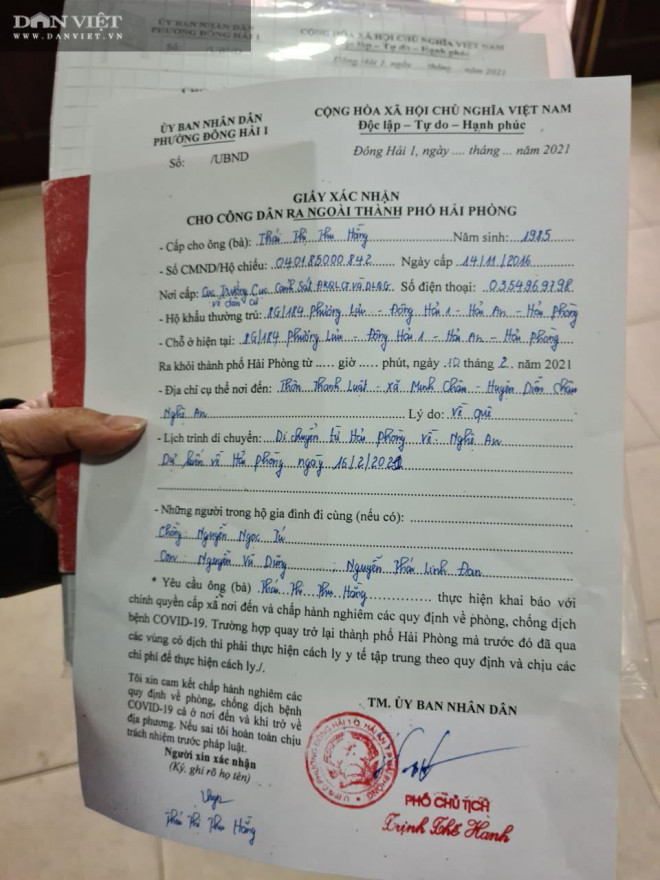 DÂN VIỆT
WWW.DANVIET.VN
ỦY BAN NHÂN DÂN
PHƯỜNG ĐÔNG HẢI 1
Số: /UBND
CỘNG HÒA XÃ HỘI CHỦ NGHĨA VIỆT NAM
Độc lập – Tự do – Hạnh phúc
Đông Hải 1, ngày .... tháng ... năm 2021
ỦY BAN NHÂN DÂN
PHƯỜNG ĐÔNG HẢI 1
Số: /UBND
CỘNG HÒA XÃ HỘI CHỦ NGHĨA VIỆT NAM
Độc lập – Tự do – Hạnh phúc
Đông Hải 1, ngày .... tháng ... năm 2021
GIẤY XÁC NHẬN
CHO CÔNG DÂN RA NGOÀI THÀNH PHỐ HẢI PHÒNG
- Cấp cho ông (bà): Thái Thị Thu Hằng Năm sinh: 1985
- Số CMND/Hộ chiếu: 040185000842 Ngày cấp 14/11/2016
Nơi cấp: Cục Trưởng Cục Cảnh Sát ĐKQLCT và DLQG Số điện thoại: 0354969798
về dân cư
- Hộ khẩu thường trú: Phường Lũn - Đông Hải 1 - Hải An - Hải Phòng
- Chỗ ở hiện tại: Phường Lũn - Đông Hải 1 - Hải An - Hải Phòng
Ra khỏi thành phố Hải Phòng từ ..... giờ ..... phút, ngày 10 tháng 2 năm 2021
- Địa chỉ cụ thể nơi đến: Thôn Thanh Luật - xã Minh Châu - Huyện Diễn Châu
Nghệ An Lý do: về quê
- Lịch trình di chuyển: Di chuyển từ Hải Phòng về Nghệ An
Dự kiến về Hải Phòng ngày 16/2/2021
- Những người trong hộ gia đình đi cùng (nếu có):
Chồng: Nguyễn Ngọc Tú
Con: Nguyễn Vũ Dũng Nguyễn Thái Linh Đan
* Yêu cầu ông (bà) Thái Thị Thu Hằng thực hiện khai báo với
chính quyền cấp xã nơi đến và chấp hành nghiêm các quy định về phòng, chống dịch
bệnh COVID-19. Trường hợp quay trở lại thành phố Hải Phòng mà trước đó đã qua
các vùng có dịch thì phải thực hiện cách ly y tế tập trung theo quy định và chịu các
chi phí để thực hiện cách ly./.
Tôi xin cam kết chấp hành nghiêm các
quy định về phòng, chống dịch bệnh
COVID-19 cả ở nơi đến và khi trở về
địa phương. Nếu sai tôi hoàn toàn chịu
trách nhiệm trước pháp luật.
Người xin xác nhận
(Ký, ghi rõ họ tên)
Thái Thị Thu Hằng
TM. ỦY BAN NHÂN DÂN
PHÓ CHỦ TỊCH
Trịnh Thế Hanh